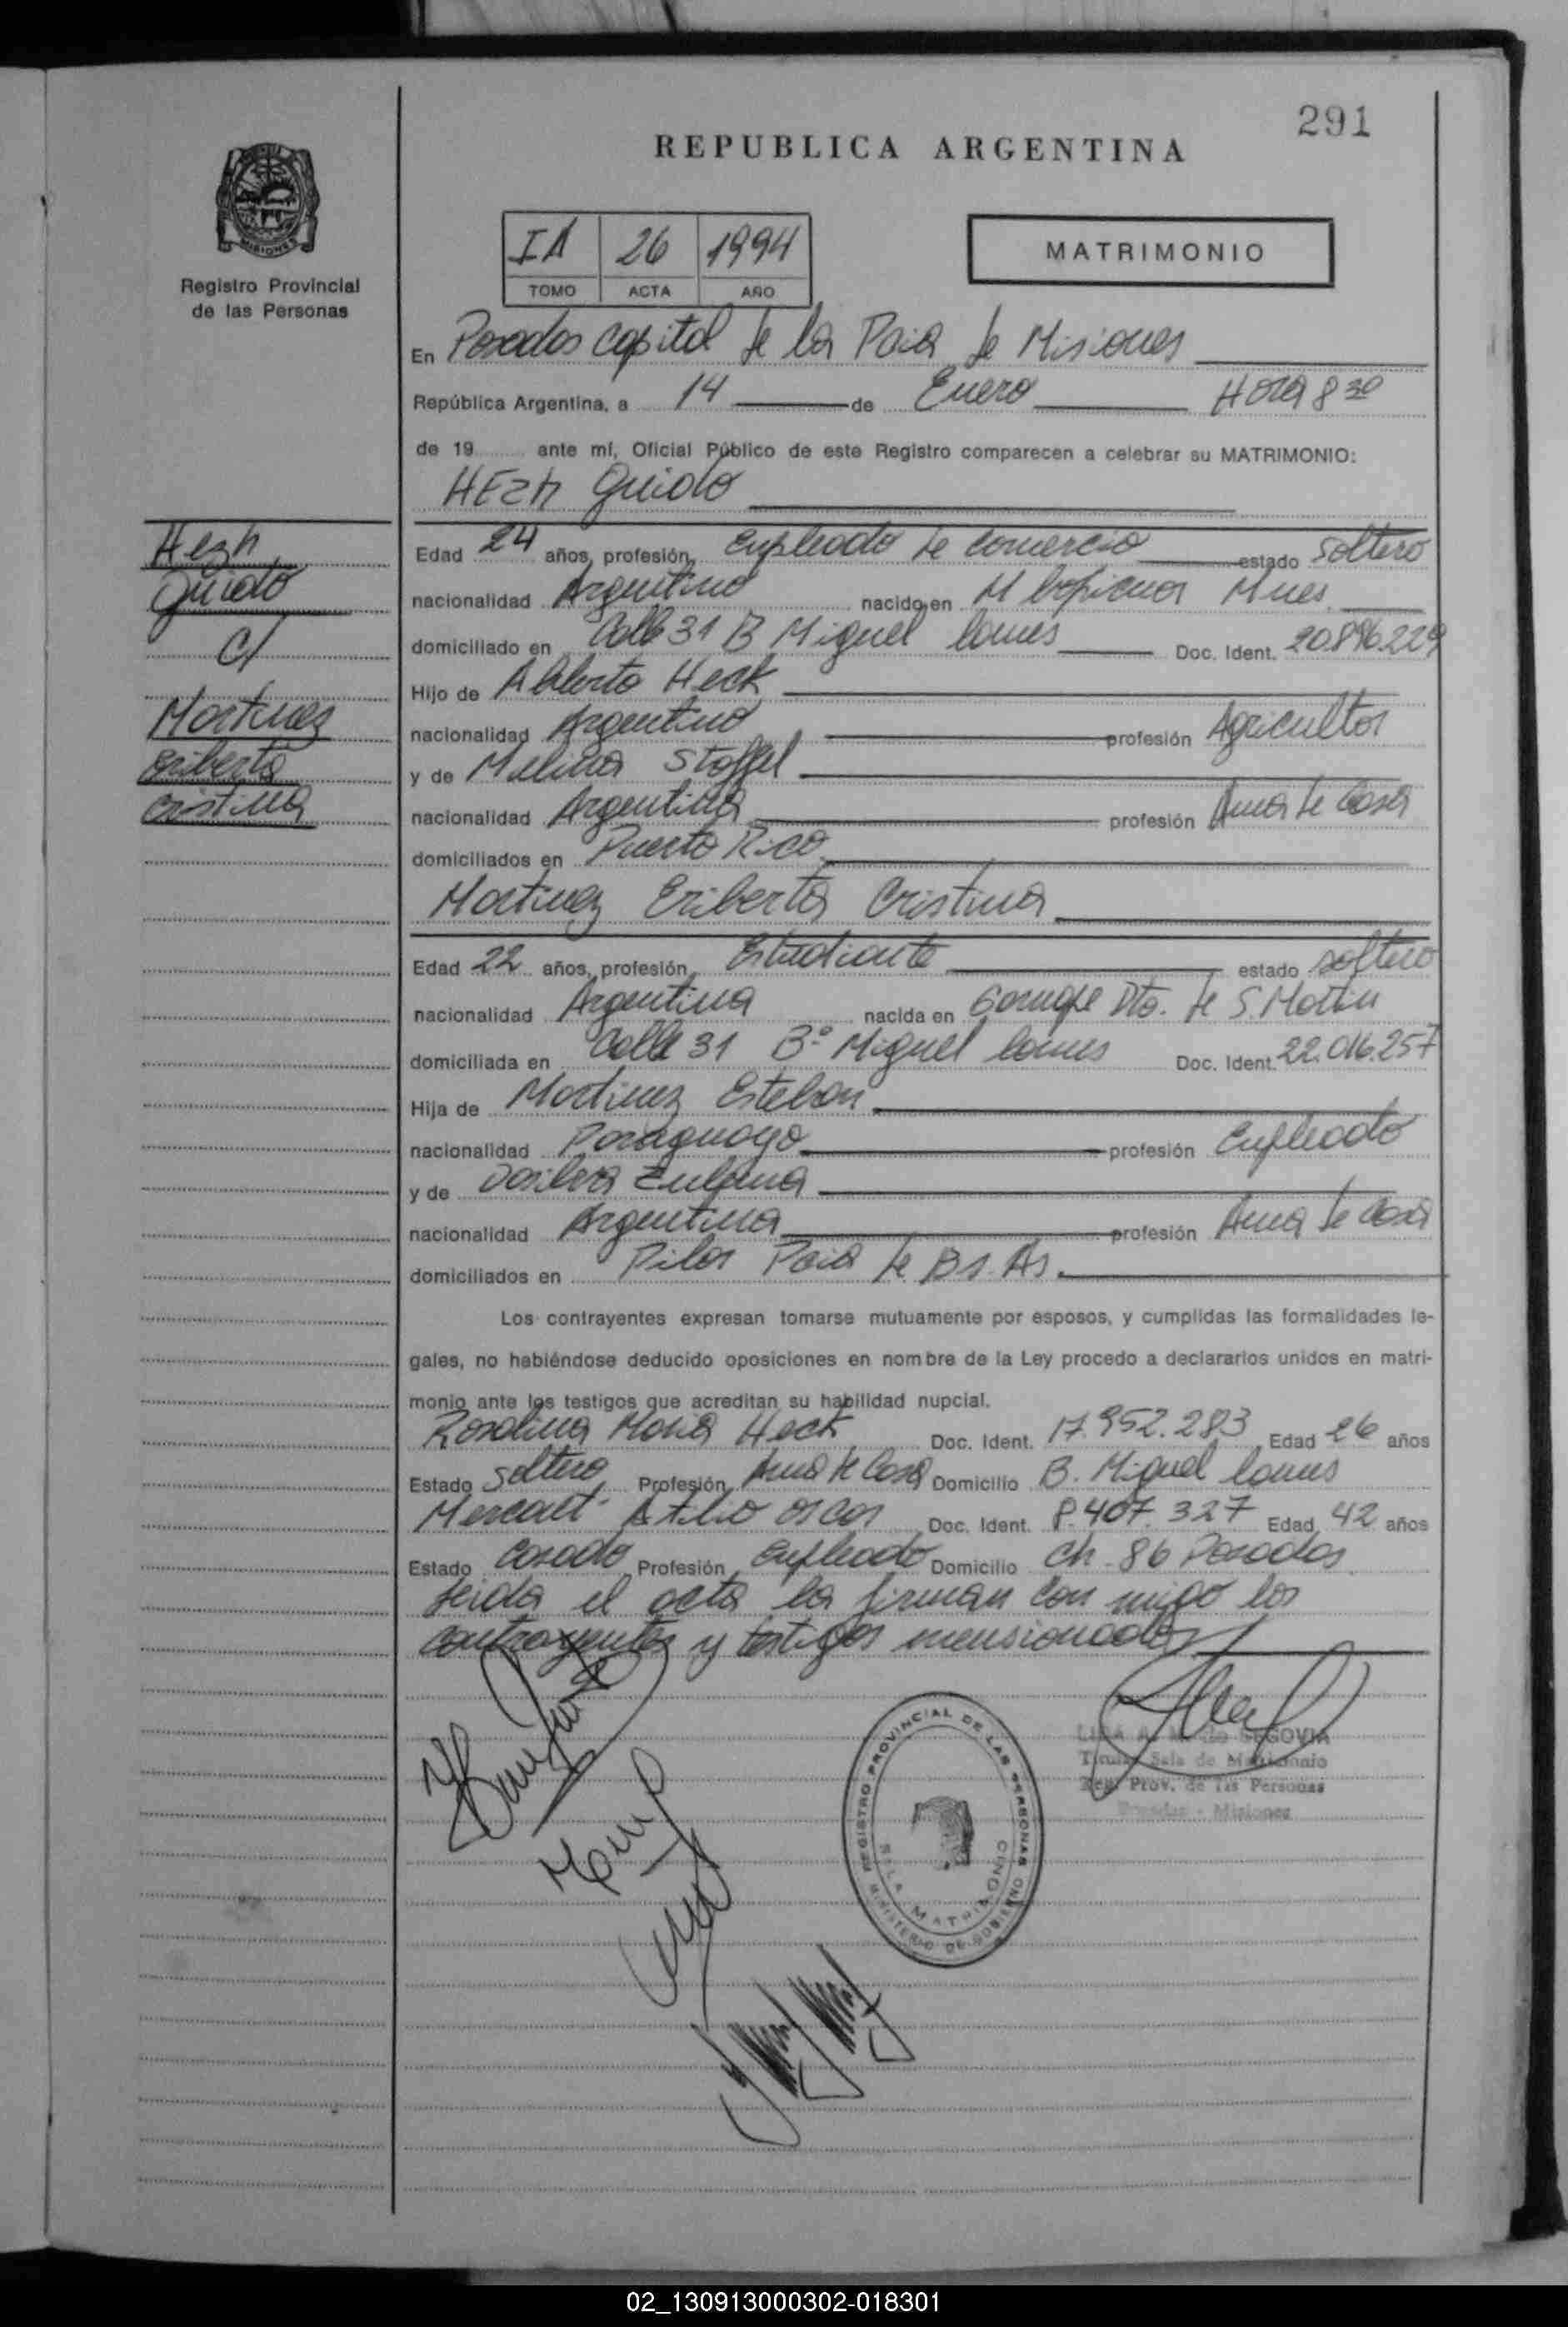 291
REPUBLICA ARGENTINA
MISIONES
Registro Provincial
de las Personas
IA 26 1994
TOMO ACTA AÑO
MATRIMONIO
En Posadas capital de la Pcia de Misiones
República Argentina, a 14 de Enero Hora 8 30
de 19 ante mí, Oficial Público de este Registro comparecen a celebrar su MATRIMONIO:
Guido
Guido
C/
Martinez
Eriberta
Cristina
Edad 24 años, profesión Empleado de Comercio estado soltero
nacionalidad Argentino nacido en Mnes
domiciliado en Calle 31 B Miguel Lanus Doc. Ident. 20.896.229
Hijo de Alberto Heck
nacionalidad Argentino profesión Agricultor
y de Melina Stoffel
nacionalidad Argentina profesión Ama de Casa
domiciliados en Puerto Rico
Martinez Eriberta Cristina
Edad 22 años, profesión Estudiante estado soltera
nacionalidad Argentina nacida en Dto. de S. Martin
domiciliada en Calle 31 B° Miguel Lanus Doc. Ident. 22.016.257
Hija de Martinez Esteban
nacionalidad Paraguayo profesión Empleado
y de Zulema
nacionalidad Argentina profesión Ama de Casa
domiciliados en Pilar Pcia de Bs. As.
Los contrayentes expresan tomarse mutuamente por esposos, y cumplidas las formalidades le-
gales, no habiéndose deducido oposiciones en nombre de la Ley procedo a declararlos unidos en matri-
monio ante los testigos que acreditan su habilidad nupcial.
Rosalina Maria Heck Doc. Ident. 17.952.283 Edad 26 años
Estado soltera Profesión Ama de Casa Domicilio B. Miguel Lanus
Atilio Oscar Doc. Ident. 8.407.327 Edad 42 años
Estado Casado Profesión Empleado Domicilio Ch. 86 Posadas
Leida el acta la firman con migo los
contrayentes y testigos mensionados
REGISTRO PROVINCIAL DE LAS PERSONAS
SALA MATRIMONIO
MINISTERIO DE GOBIERNO
SEGOVIA
Titular Sala de Matrimonio
Reg. Prov. de las Personas
Posadas - Misiones
02_130913000302-018301